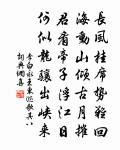 長風挂席勢難迴
海動山傾古月摧
君看帝子浮江日
何似龍驤出峽來
李白永王東巡歌其八